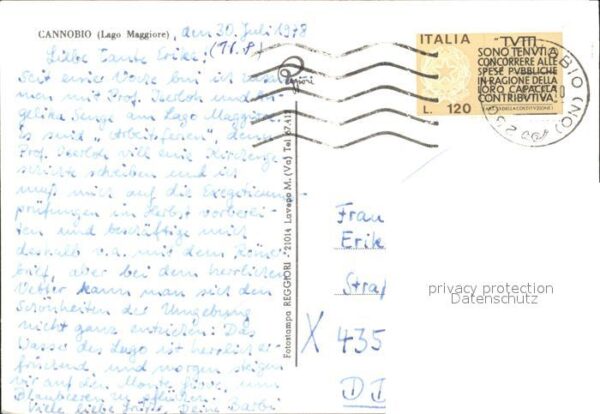 CANNOBIO (Lago Maggiore), am 30. Juli 1978
(11.8)
Liebe Tante Erika!
Seit einer Woche bin ich
men mit Prof. Iserloh und An-
gelika Senge am Lago Maggiore.
Es sind "Arbeitsferien", denn
Prof. Iserloh will eine Kircheng
schichte schreiben und ich
muß mich auf die Exegeticum-
prüfungen im Herbst vorberei-
ten und beschäftige mich
deshalb v.a. mit dem Römer
brief, aber bei dem herrlichen
Wetter kann man sich den
Schönheiten der Umgebung
nicht ganz entziehen. Das
Wasser des Lago ist herrlich er-
frischend und morgen steigen
wir auf den Monte um
Blaubeeren zu pflücken.
Viele liebe Grüße, Deine Barbi
Fotostampa REGGIORI - 21014 Laveno M. (Va) Tel. 67.411
Reggiori
ITALIA
"TUTTI
SONO TENUTI A
CONCORRERE ALLE
SPESE PUBBLICHE
IN RAGIONE DELLA
LORO CAPACITÀ
CONTRIBUTIVA."
L. 120
BIO (NO)
Frau
Erik
Straß
X 435
DI
privacy protection
Datenschutz